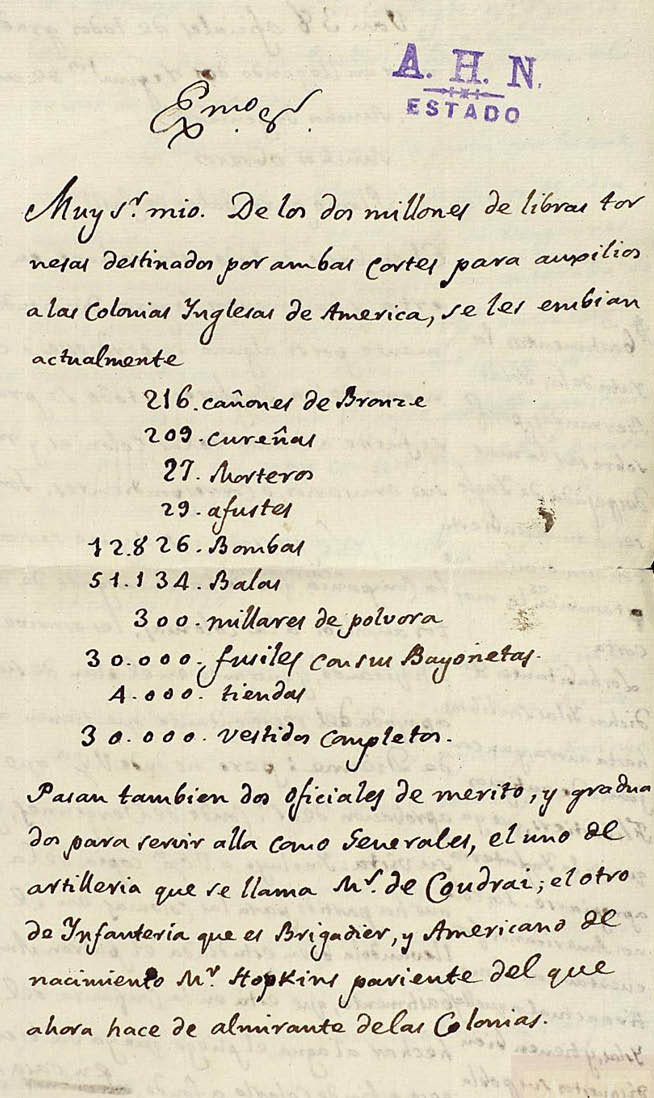 A. H. N.
ESTADO
Exmo. Sr.
Muy Sr. mio. De los dos millones de libras tor
nesas destinados por ambas Cortes para auxilios
a las Colonias Inglesas de America, se les embian
actualmente
216. cañones de Bronze
209. cureñas
27. Morteros
29. afustes
12.826. Bombas
51.134. Balas
300. millares de polvora
30.000. fusiles con sus Bayonetas.
4.000. tiendas
30.000. vestidos completos.
Pasan tambien dos oficiales de merito, y gradua
dos para servir alla como Generales, el uno de
artilleria que se llama Mr. de Coudrai; el otro
de Infantería que es Brigadier, y Americano de
nacimiento Mr. Hopkins pariente del que
ahora hace de almirante de las Colonias.